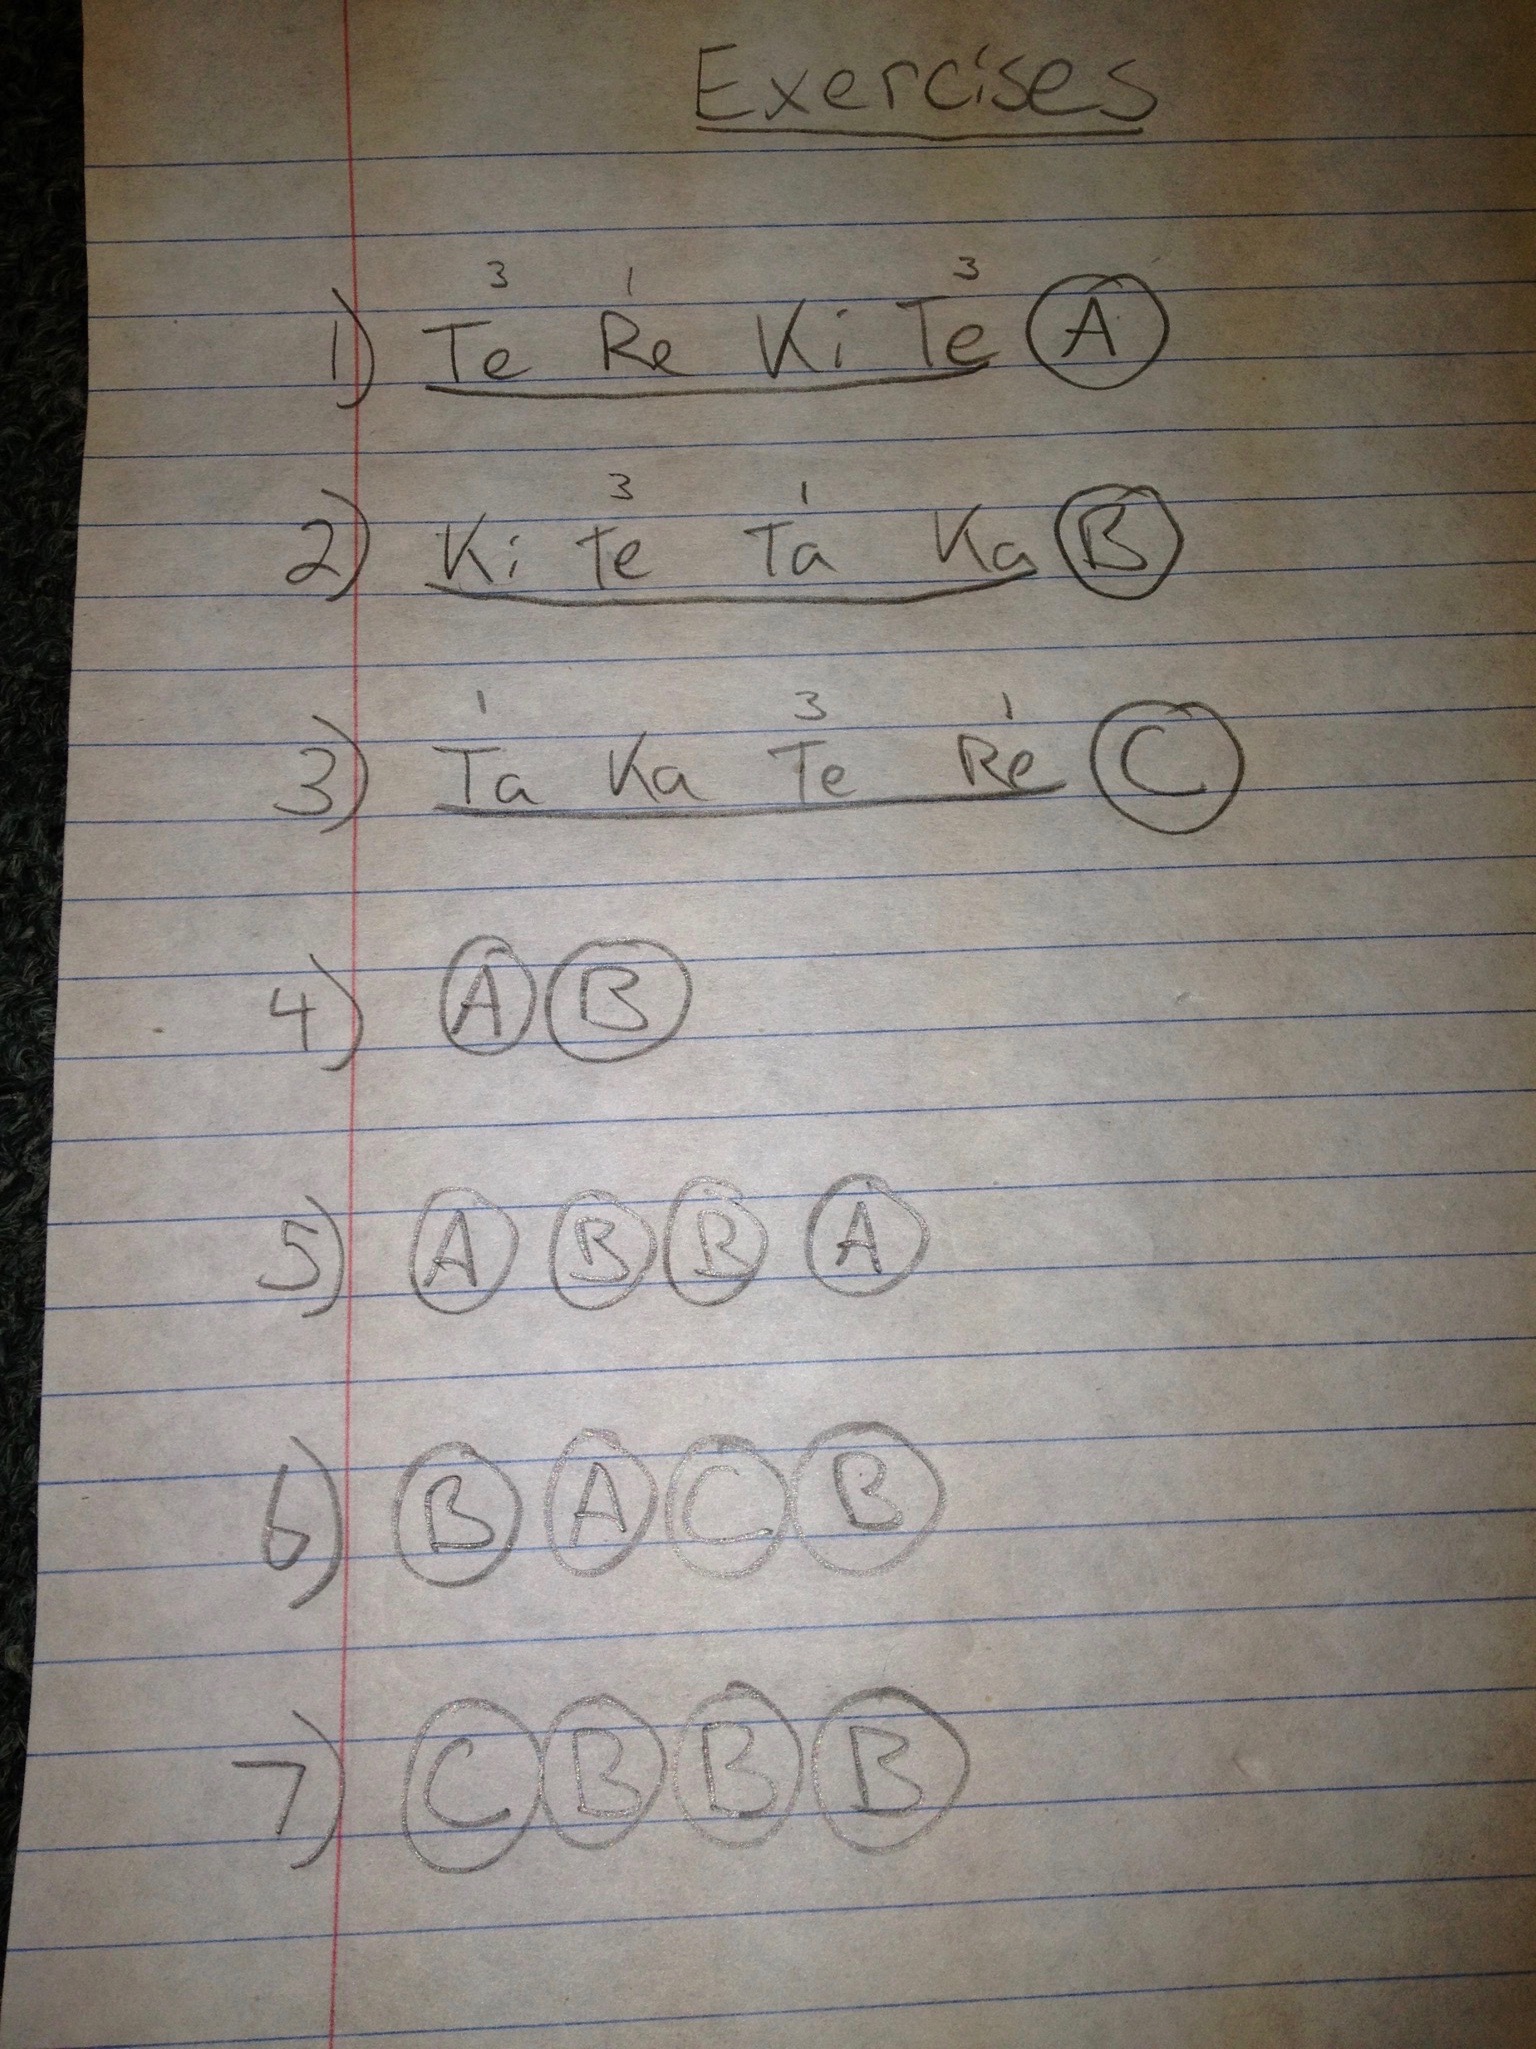 Exercises
3 1 3
1) Te Re Ki Te A
3 1
2) Ki Te Ta Ka B
1 3 1
3) Ta Ka Te Re C
4) A B
5) A B B A
6) B A C B
7) C B B B